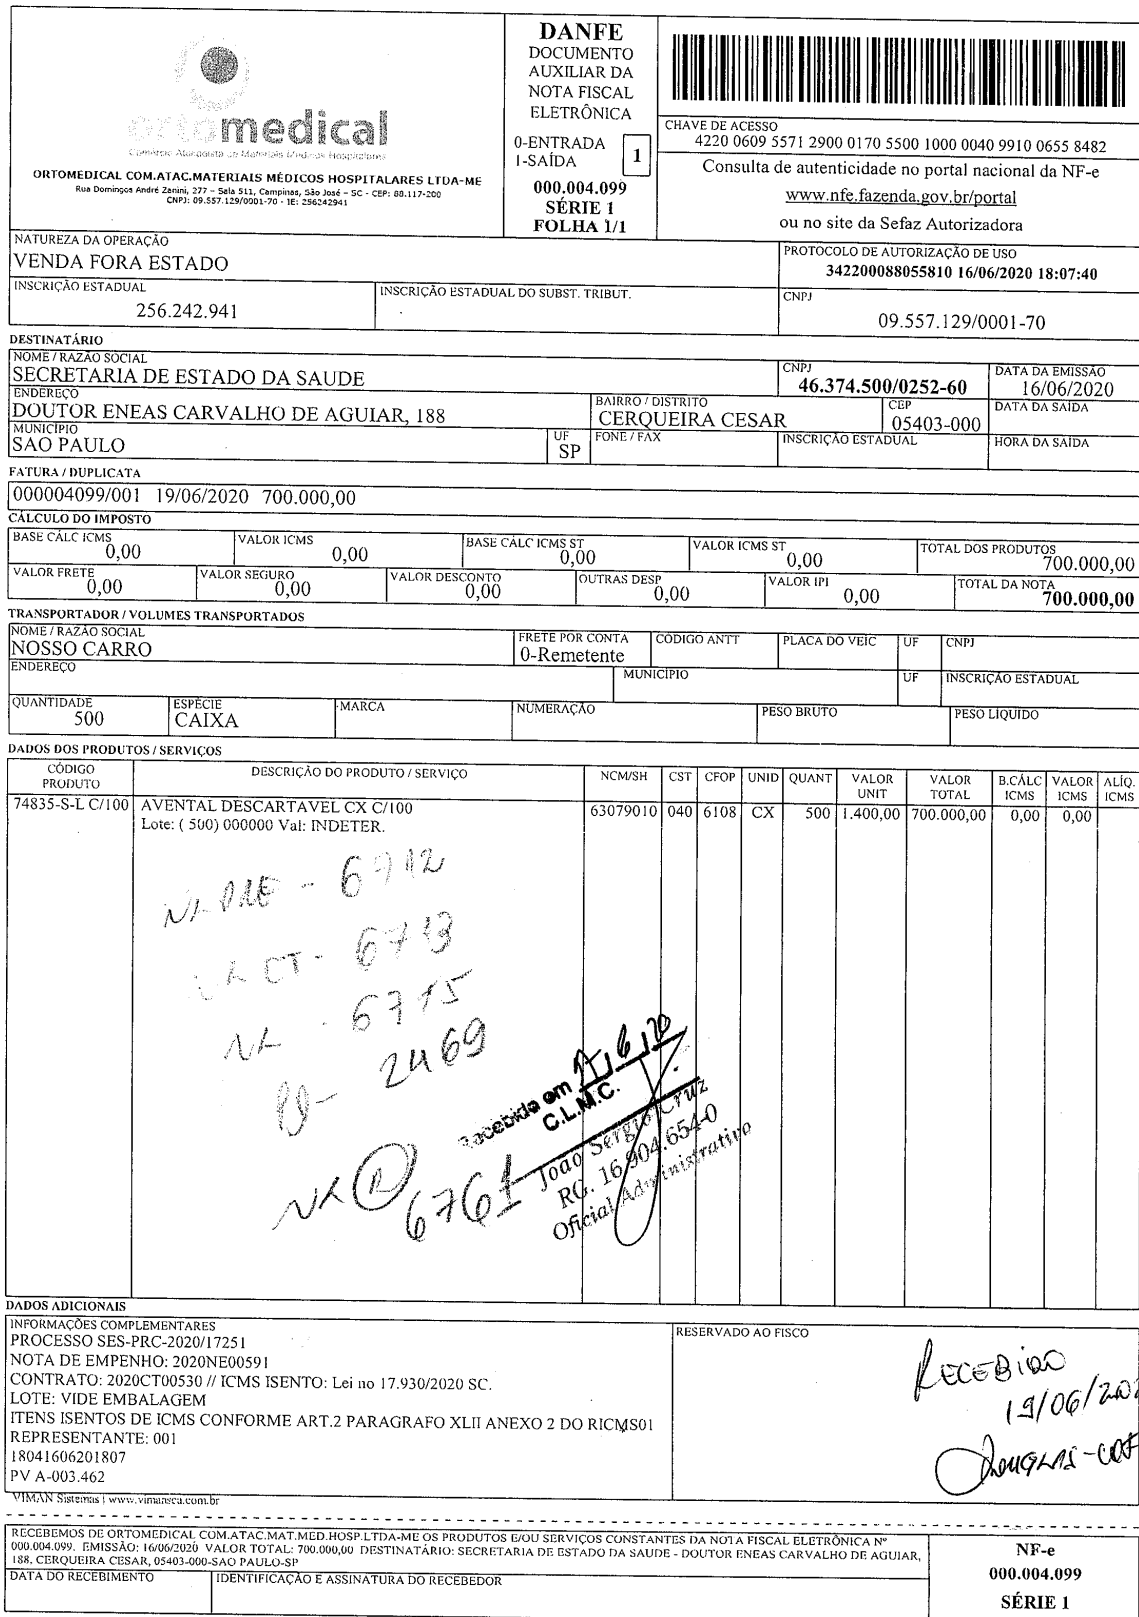 ortomedical
Comércio Atacadista de Materiais Médicos Hospitalares
ORTOMEDICAL COM.ATAC.MATERIAIS MÉDICOS HOSPITALARES LTDA-ME
Rua Domingos André Zanini, 277 - Sala 511, Campinas, São José - SC - CEP: 88.117-200
CNPJ: 09.557.129/0001-70 - IE: 256242941
DANFE
DOCUMENTO
AUXILIAR DA
NOTA FISCAL
ELETRÔNICA
0-ENTRADA
1-SAÍDA
1
000.004.099
SÉRIE 1
FOLHA 1/1
CHAVE DE ACESSO
4220 0609 5571 2900 0170 5500 1000 0040 9910 0655 8482
Consulta de autenticidade no portal nacional da NF-e
www.nfe.fazenda.gov.br/portal
ou no site da Sefaz Autorizadora
NATUREZA DA OPERAÇÃO
VENDA FORA ESTADO
PROTOCOLO DE AUTORIZAÇÃO DE USO
342200088055810 16/06/2020 18:07:40
INSCRIÇÃO ESTADUAL
256.242.941
INSCRIÇÃO ESTADUAL DO SUBST. TRIBUT.
CNPJ
09.557.129/0001-70
DESTINATÁRIO
NOME / RAZÃO SOCIAL
SECRETARIA DE ESTADO DA SAUDE
CNPJ
46.374.500/0252-60
DATA DA EMISSÃO
16/06/2020
ENDEREÇO
DOUTOR ENEAS CARVALHO DE AGUIAR, 188
BAIRRO / DISTRITO
CERQUEIRA CESAR
CEP
05403-000
DATA DA SAÍDA
MUNICÍPIO
SAO PAULO
UF
SP
FONE / FAX
INSCRIÇÃO ESTADUAL
HORA DA SAÍDA
FATURA / DUPLICATA
000004099/001 19/06/2020 700.000,00
CÁLCULO DO IMPOSTO
BASE CÁLC ICMS
0,00
VALOR ICMS
0,00
BASE CÁLC ICMS ST
0,00
VALOR ICMS ST
0,00
TOTAL DOS PRODUTOS
700.000,00
VALOR FRETE
0,00
VALOR SEGURO
0,00
VALOR DESCONTO
0,00
OUTRAS DESP
0,00
VALOR IPI
0,00
TOTAL DA NOTA
700.000,00
TRANSPORTADOR / VOLUMES TRANSPORTADOS
NOME / RAZÃO SOCIAL
NOSSO CARRO
FRETE POR CONTA
0-Remetente
CÓDIGO ANTT
PLACA DO VEÍC
UF
CNPJ
ENDEREÇO
MUNICÍPIO
UF
INSCRIÇÃO ESTADUAL
QUANTIDADE
500
ESPÉCIE
CAIXA
MARCA
NUMERAÇÃO
PESO BRUTO
PESO LÍQUIDO
DADOS DOS PRODUTOS / SERVIÇOS
CÓDIGO PRODUTO DESCRIÇÃO DO PRODUTO / SERVIÇO NCM/SH CST CFOP UNID QUANT VALOR UNIT VALOR TOTAL B.CÁLC ICMS VALOR ICMS ALÍQ. ICMS
74835-S-L C/100 AVENTAL DESCARTAVEL CX C/100 63079010 040 6108 CX 500 1.400,00 700.000,00 0,00 0,00
Lote: ( 500) 000000 Val: INDETER.
- 6712
CT - 6713
- 6715
- 2469
6761
Recebido em 17/6/20
C.L.M.C.
João Sergio Cruz
RG. 16.904.654-0
Oficial Administrativo
DADOS ADICIONAIS
INFORMAÇÕES COMPLEMENTARES
PROCESSO SES-PRC-2020/17251
NOTA DE EMPENHO: 2020NE00591
CONTRATO: 2020CT00530 // ICMS ISENTO: Lei no 17.930/2020 SC.
LOTE: VIDE EMBALAGEM
ITENS ISENTOS DE ICMS CONFORME ART.2 PARAGRAFO XLII ANEXO 2 DO RICMS01
REPRESENTANTE: 001
18041606201807
PV A-003.462
RESERVADO AO FISCO
RECEBIDO
19/06/202
DOUGLAS -
VIMAN Sistemas | www.vimansca.com.br
RECEBEMOS DE ORTOMEDICAL COM.ATAC.MAT.MED.HOSP.LTDA-ME OS PRODUTOS E/OU SERVIÇOS CONSTANTES DA NOTA FISCAL ELETRÔNICA Nº
000.004.099. EMISSÃO: 16/06/2020 VALOR TOTAL: 700.000,00 DESTINATÁRIO: SECRETARIA DE ESTADO DA SAUDE - DOUTOR ENEAS CARVALHO DE AGUIAR,
188, CERQUEIRA CESAR, 05403-000-SAO PAULO-SP
DATA DO RECEBIMENTO
IDENTIFICAÇÃO E ASSINATURA DO RECEBEDOR
NF-e
000.004.099
SÉRIE 1